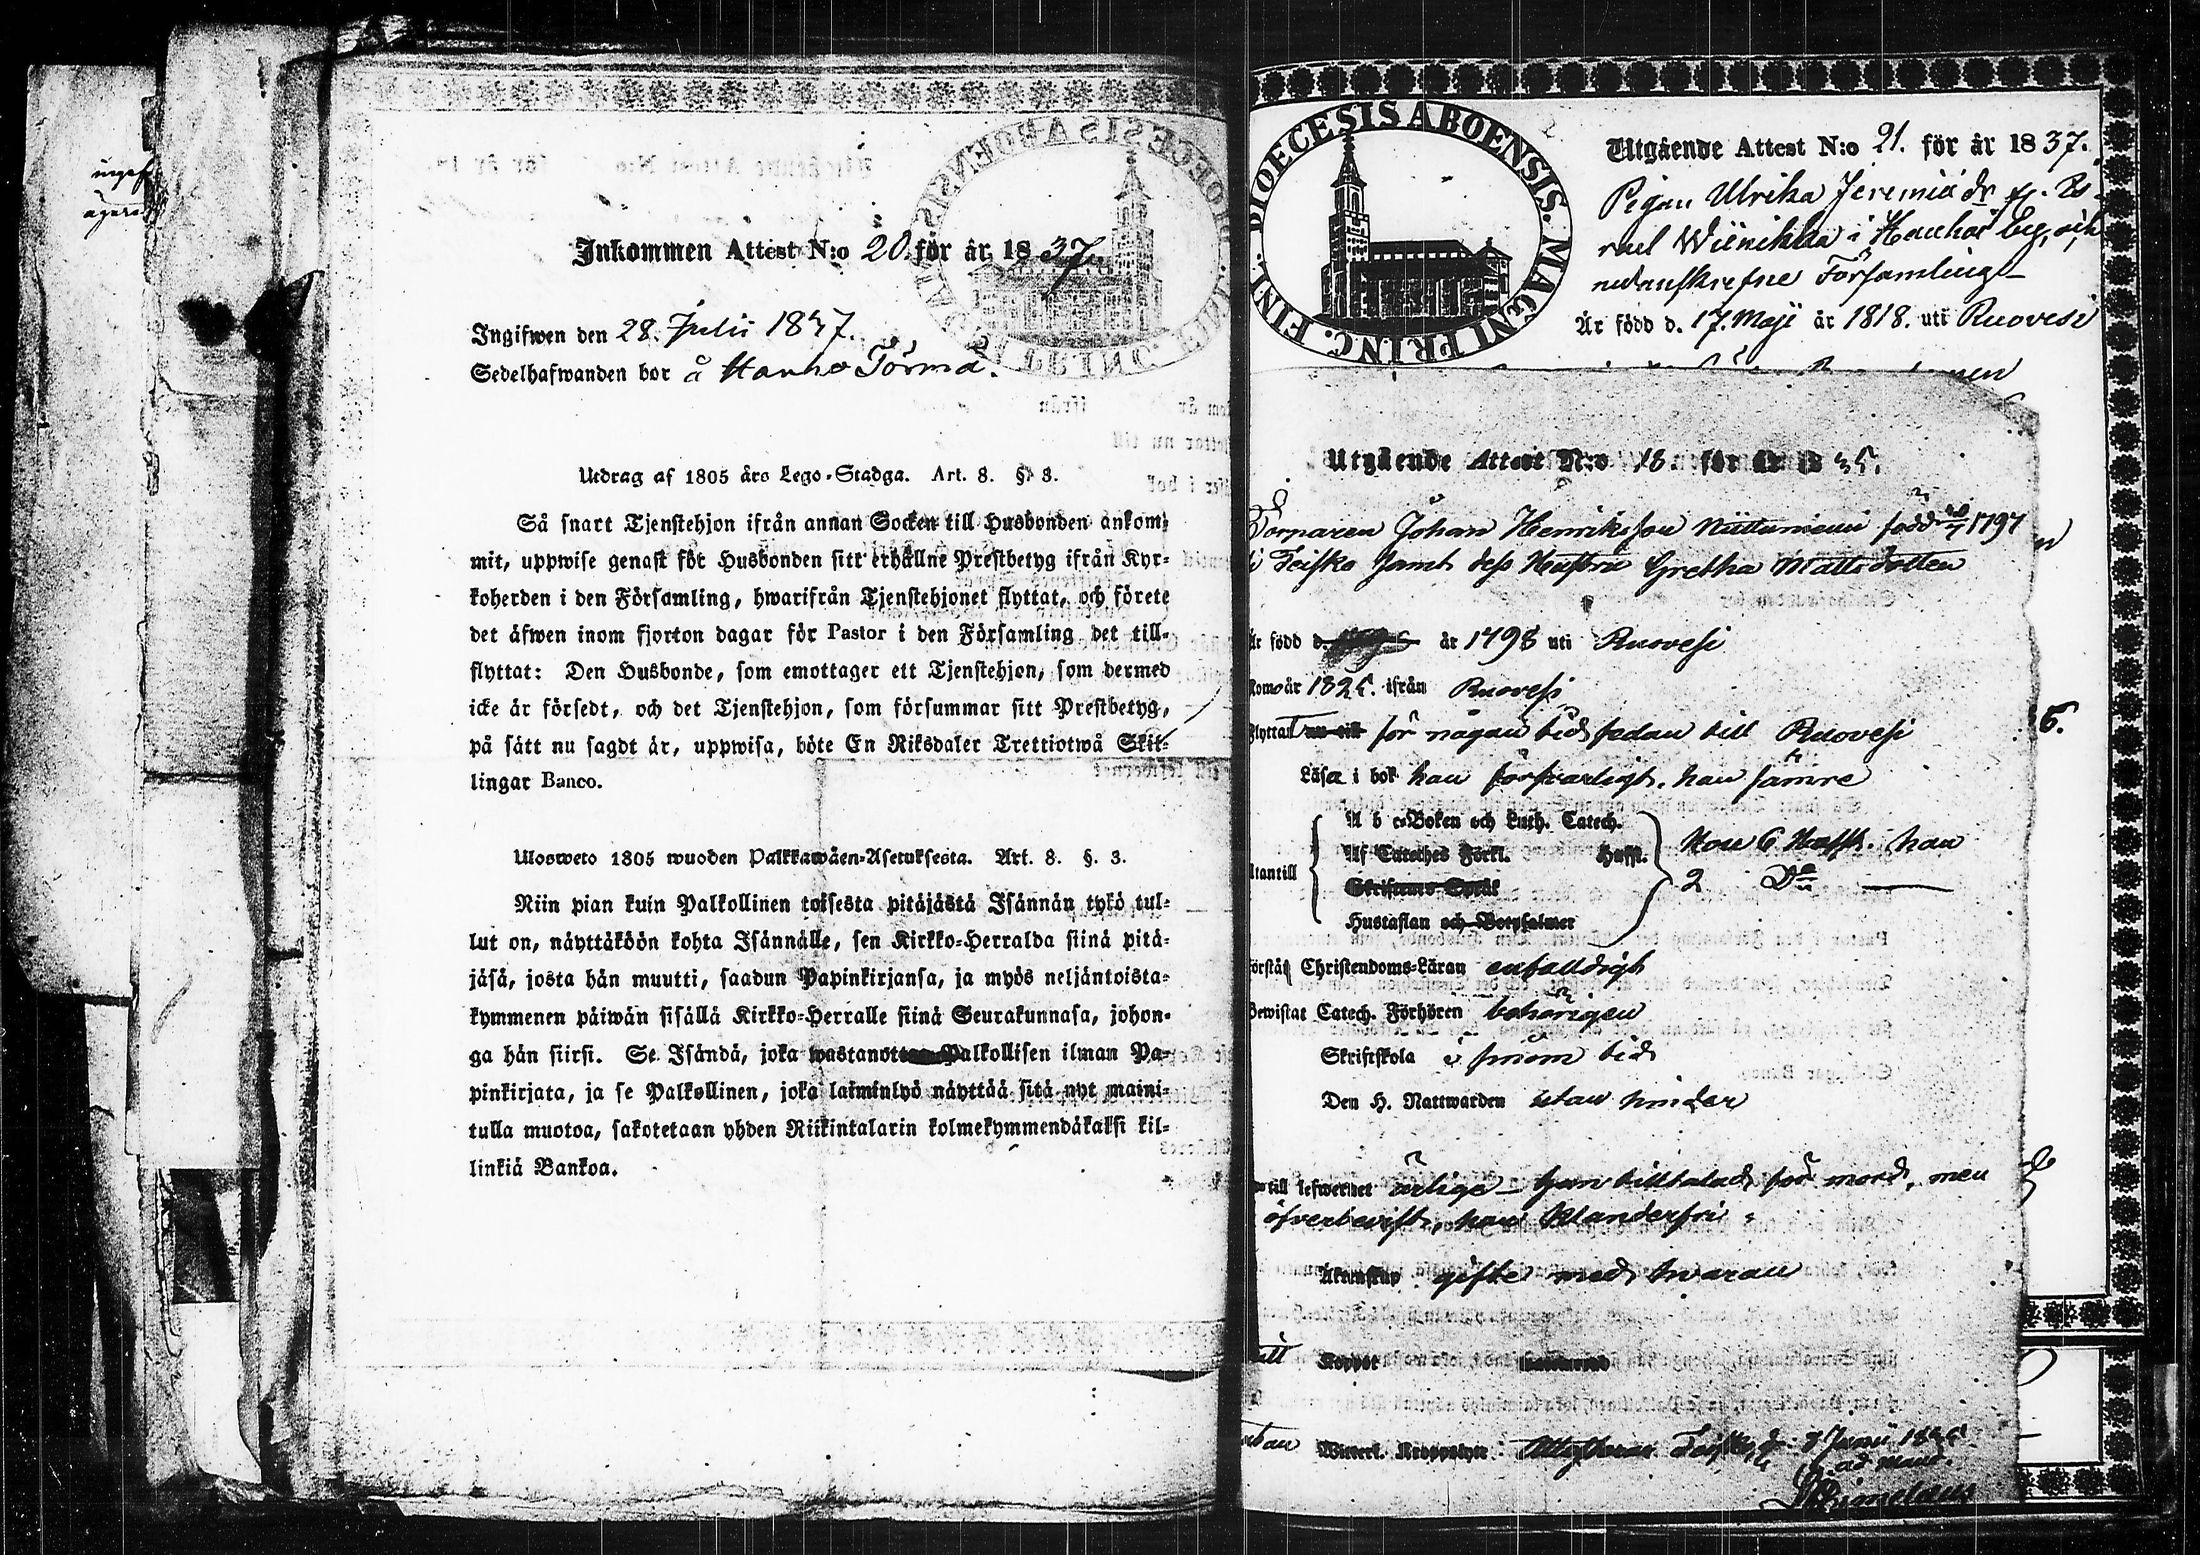 Inkommen Attest N:o 20 för år 1837.
Ingifwen den 28. Julii 1837.
Sedelhafwanden bor å Hanho Törmä.
Utdrag af 1805 års Lego-Stadga. Art. 8. § 3.
Så snart Tjenstehjon ifrån annan Socken till Husbonden ankom-
mit, uppwise genast för Husbonden sitt erhållne Prestbetyg ifrån Kyr-
koherden i den Församling, hwarifrån Tjenstehjonet flyttat, och förete
det äfwen inom fjorton dagar för Pastor i den Församling det till-
flyttat: Den Husbonde, som emottager ett Tjenstehjon, som dermed
icke är försedt, och det Tjenstehjon, som försummar sitt Prestbetyg,
på sätt nu sagdt är, uppwisa, böte En Riksdaler Trettiotwå Skil-
lingar Banco.
Ulosweto 1805 wuoden Palkkawäen-Asetuksesta. Art. 8. §. 3.
Niin pian kuin Palkollinen toisesta pitäjästä Isännän tykö tul-
lut on, näyttäköön kohta Isännälle, sen Kirkko-Herralda siinä pitä-
jäsä, josta hän muutti, saadun Papinkirjansa, ja myös neljäntoista-
kymmenen päiwän sisällä Kirkko-Herralle siinä Seurakunnasa, johon-
ga hän siirsi. Se Isändä, joka wastanottaa Palkollisen ilman Pa-
pinkirjata, ja se Palkollinen, joka laiminlyö näyttää sitä nyt maini-
tulla muotoa, sakotetaan yhden Riikintalarin kolmekymmendäkaksi kil-
linkiä Bankoa.
FINL. DIOECESIS ABOENSIS. MAGNI PRINC.
Utgående Attest N:o 21. för år 1837.
Pigan Ulrika Jeremiædr
Wiinikka i Hauho by, och
nedanskrefne Församling
Är född d. 17. Maji år 1818. uti Ruovesi
Utgående Attest N:o 18. för år 1835.
Torparen Johan Henriksson Niittuniemi född 1797
i Teisko samt dess Hustru Gretha Mattsdotter
är född d. år 1798 uti Ruovesi
kom år 1825. ifrån Ruovesi
flyttat nu till för någon tid sedan till Ruovesi
Läsa i bok han försvarligt, hon sämre
A b c-Boken och Luth. Catech.
Af Catches Förkl. Hufst.
Skriftens Språk
Hustaflan och Botpsalmer
2 Do
Förstå Christendoms-Läran enfaldigt
Bewistat Catech. Förhören behörigen
Skriftskola i sinom tid
Den H. Nattwarden utan hinder
till lefwernet ärlige – han tilltalad för mord, men
öfverbevist, hon klanderfri
Äktenskap gifte med hvaran
Koppor
Witterl. Kroppslyte Attesterar Teisko d. 8 Junii 1835
ad mand.